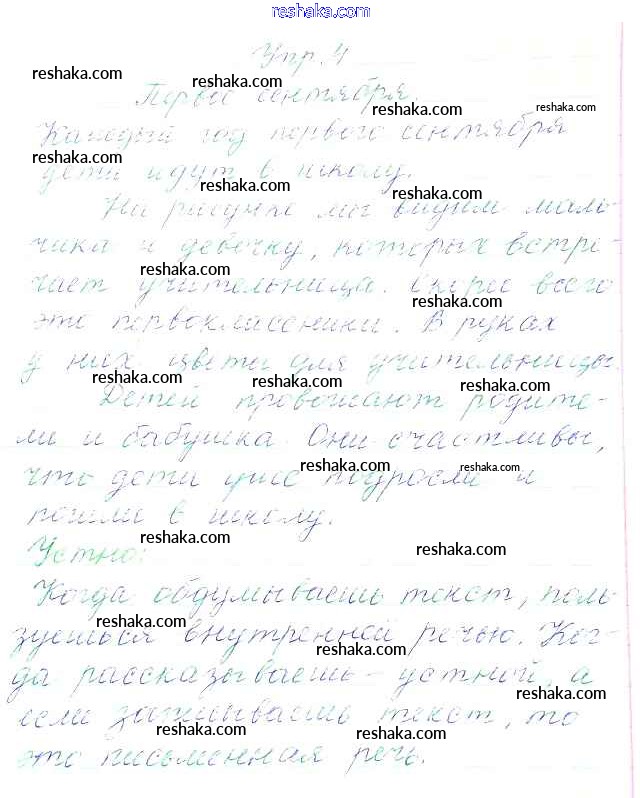 reshaka.com reshaka.com
Упр. 4
reshaka.com reshaka.com
Первое сентября.
reshaka.com reshaka.com
Каждый год первого сентября
reshaka.com
дети идут в школу.
reshaka.com reshaka.com
На рисунке мы видим маль-
чика и девочку, которых встре-
reshaka.com
чает учительница. Скорее всего
reshaka.com
это первоклассники. В руках
у них цветы для учительницы.
reshaka.com reshaka.com reshaka.com
Детей провожают родите-
ли и бабушка. Они счастливы,
reshaka.com reshaka.com
что дети уже подросли и
пошли в школу.
reshaka.com reshaka.com
Устно:
Когда обдумываешь текст, поль-
reshaka.com
зуешься внутренней речью. Ког-
reshaka.com
да рассказываешь – устной, а
reshaka.com
если записываешь текст, то
reshaka.com
это письменная речь.
reshaka.com